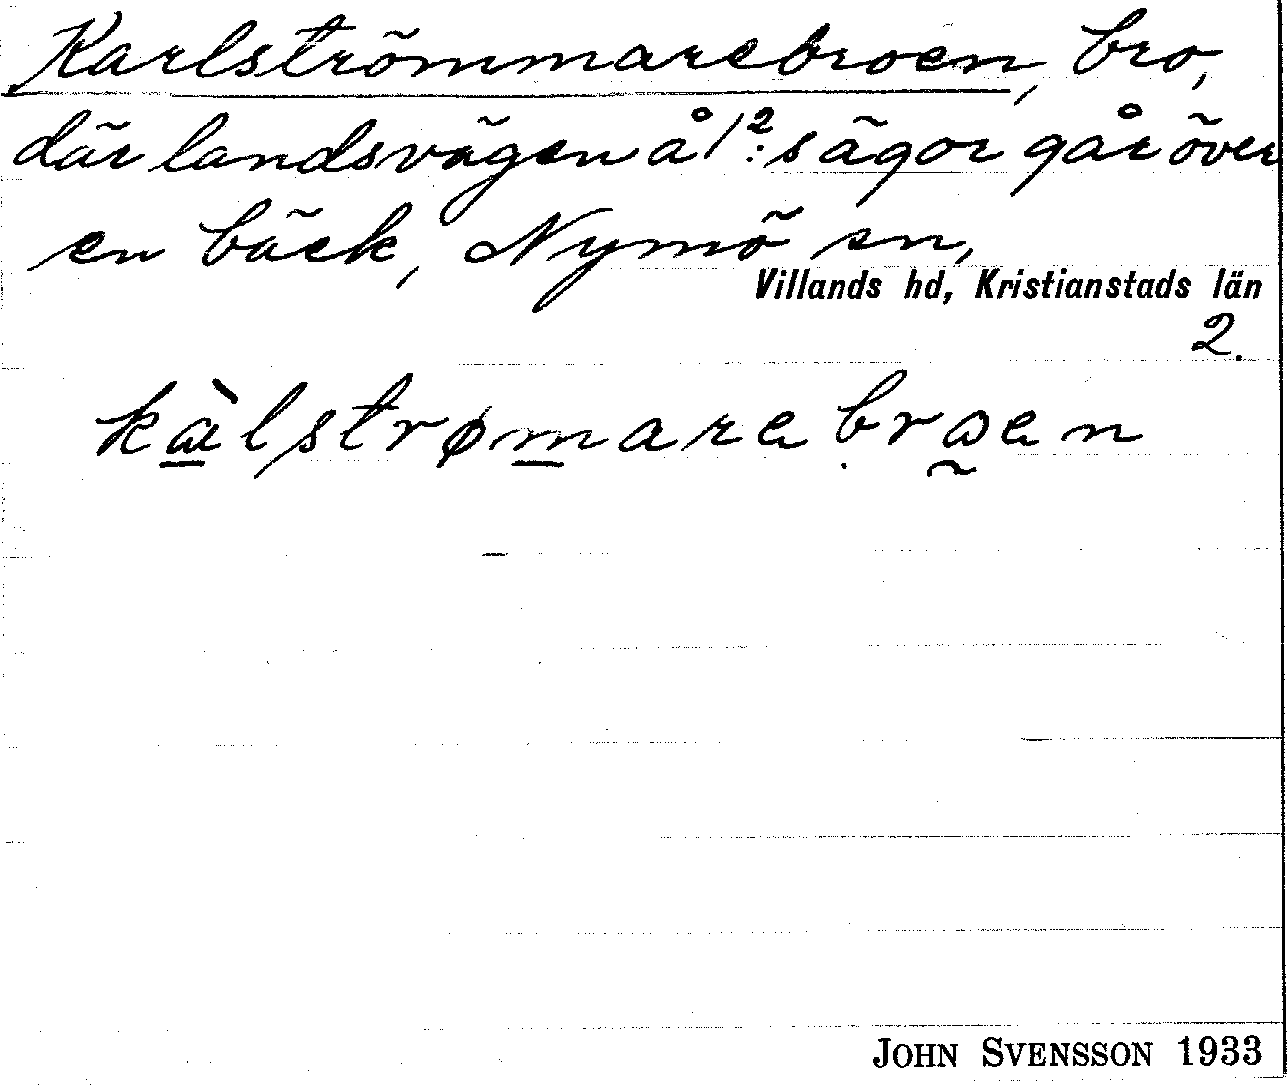 Karlströmmarebroen, bro,
där landsvägen å 1²:s ägor går över
en bäck, Nymö sn,
Villands hd, Kristianstads län
2.
kàlstrømarebroen
JOHN SVENSSON 1933